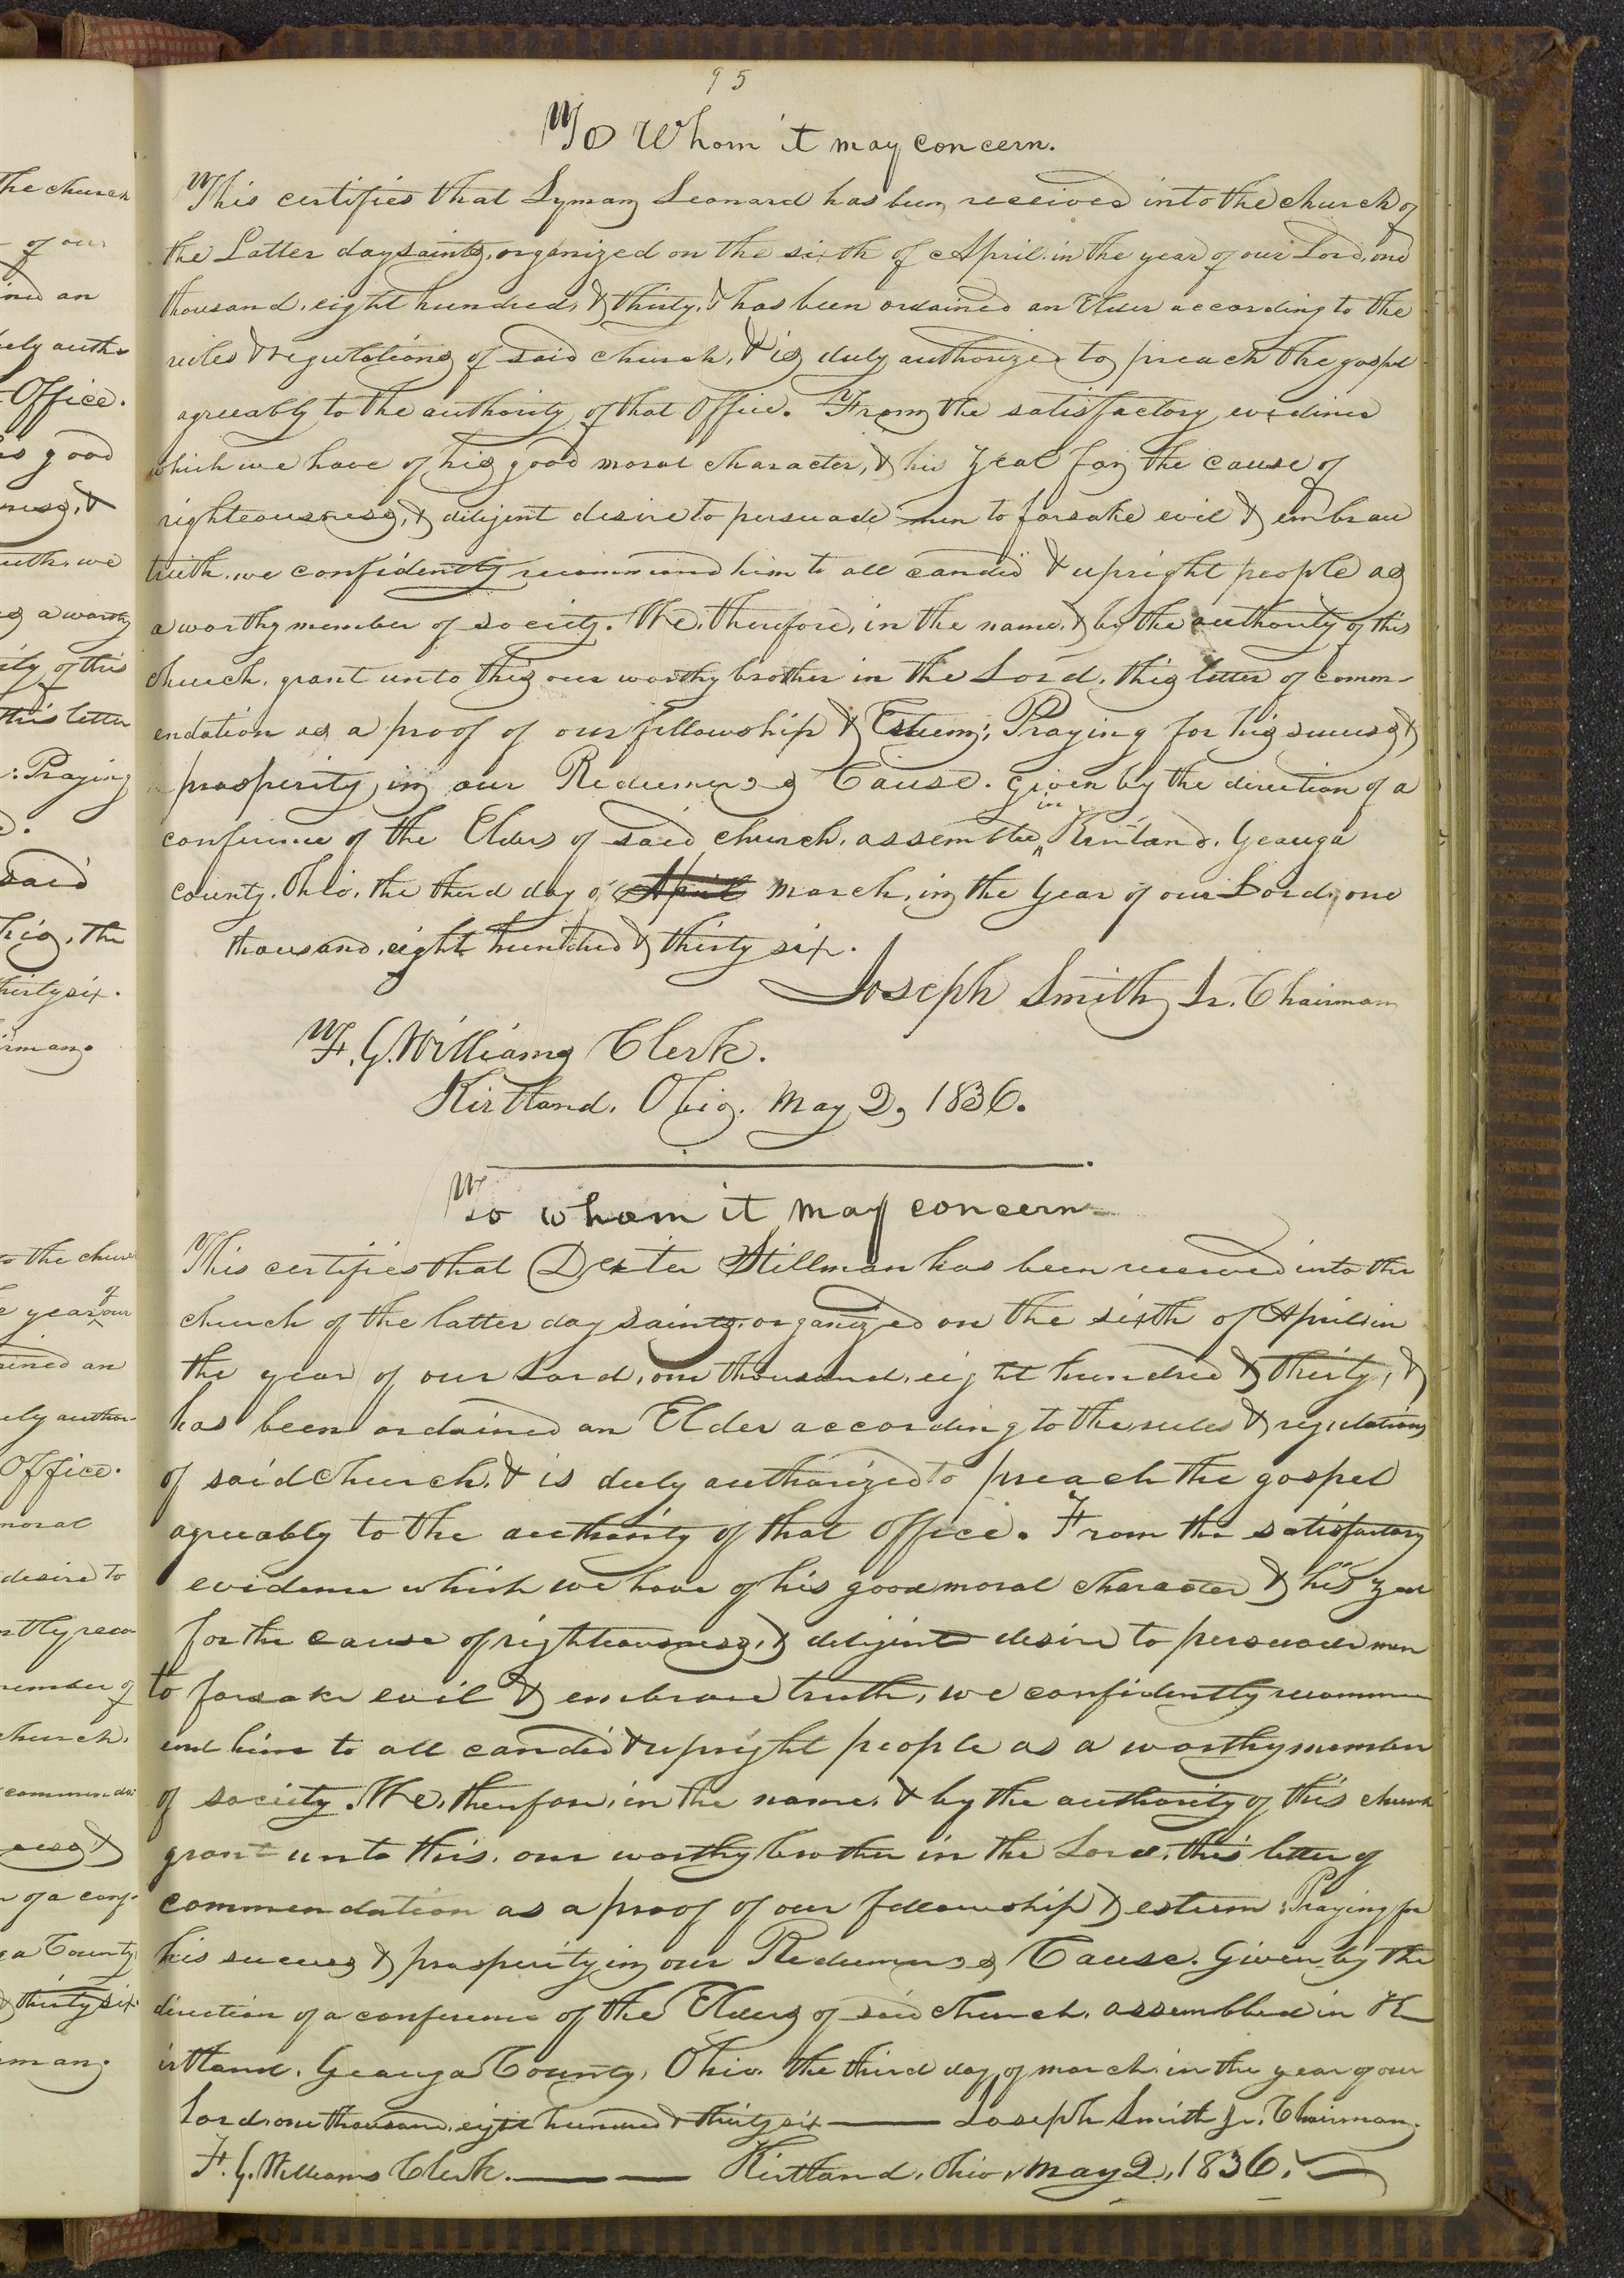 95
To Whom it may concern.
This certifies that Lyman Leonard has been received into the church of
the Latter day saints, organized on the sixth of April, in the year of our Lord, one
thousand, eight hundred, & thirty, & has been ordained an Elder according to the
rules & regulations of said church, & is duly authorized to preach the gospel
agreeably to the authority of that Office. From the satisfactory evidence
which we have of his good moral character, & his zeal for the cause of
righteousness, & diligent desire to persuade men to forsake evil & embrace
truth, we confidently recommend him to all candid & upright people as
a worthy member of society. We, therefore, in the name, & by the authority of this
church, grant unto this our worthy brother in the Lord, this letter of comm-
endation as a proof of our fellowship & Esteem; Praying for his success &
prosperity in our Redeemer's Cause. Given by the direction of a
conference of the Elders of said church, assembled in Kirtland, Geauga
county, Ohio, the third day of April march, in the Year of our Lord, one
thousand, eight hundred & thirty six.
Joseph Smith Jr. Chairman
F. G. Williams Clerk.
Kirtland, Ohio, May 2, 1836.
To whom it may concern
This certifies that Dexter Stillman has been received into the
church of the latter day saints, organized on the sixth of April, in
the year of our Lord, one thousand, eight hundred & thirty, &
has been ordained an Elder according to the rules & regulations
of said Church, & is duly authorized to preach the gospel
agreeably to the authority of that Office. From the satisfactory
evidence which we have of his good moral character & his zeal
for the cause of righteousness, & diligent desire to persuade men
to forsake evil & embrace truth, we confidently recomm
end him to all candid & upright people as a worthy member
of society. We, therefore, in the name, & by the authority of this church
grant unto this, our worthy brother in the Lord, this letter of
commendation as a proof of our fellowship & esteem: Praying for
his success & prosperity in our Redeemer's Cause. Given by the
direction of a conference of the Elders of said church, assembled in K
irtland, Geauga County, Ohio, the third day of march, in the year of our
Lord, one thousand, eight hundred & thirty six —— Joseph Smith Jr. Chairman.
F. G. Williams Clerk. —— —— Kirtland, Ohio, May 2, 1836.